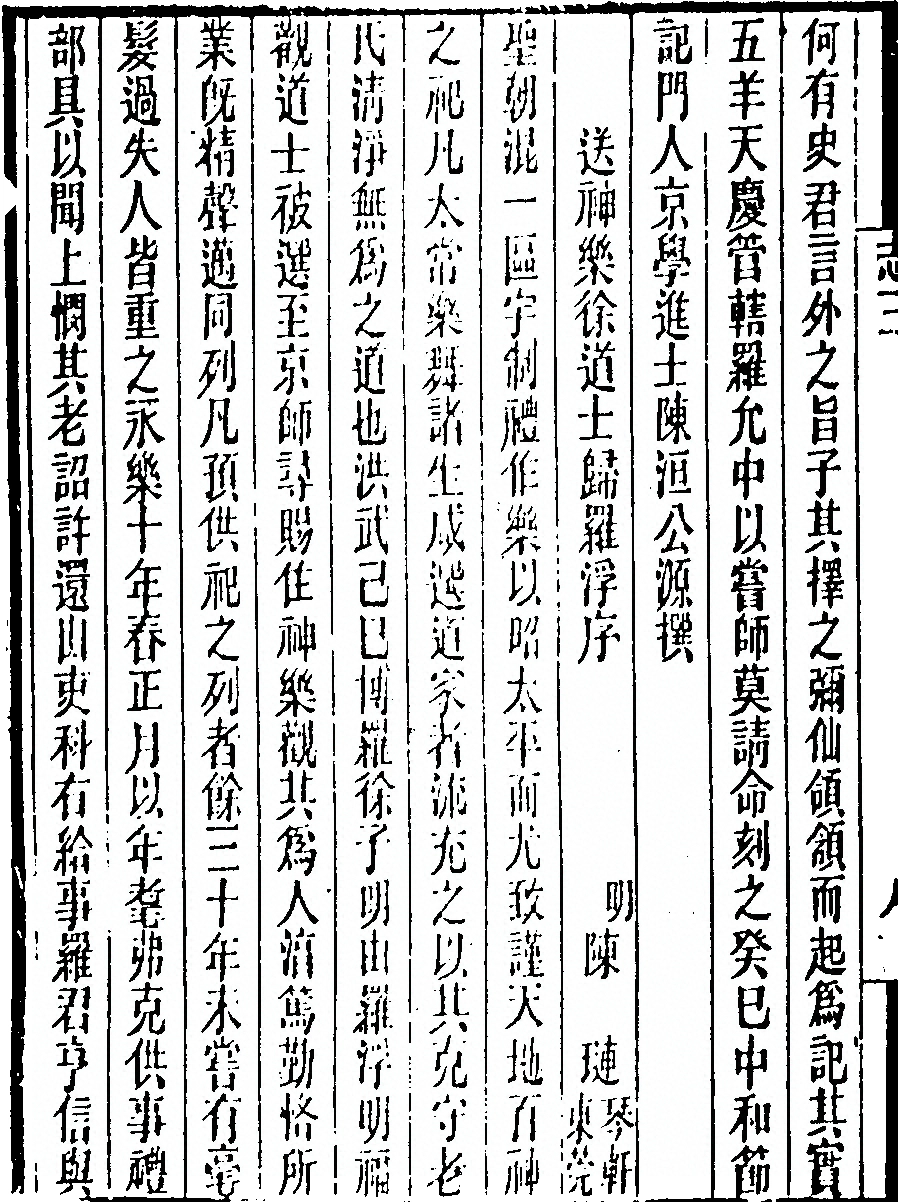 何有史君言外之旨子其擇之彌仙頎頷而起爲記其實
五羊天慶管轄羅允中以嘗師莫請命刻之癸巳中和節
記門人京學進士陳洹公源撰
送神樂徐道士歸羅浮序 明陳 璉琴軒東莞
聖朝混一區宇制禮作樂以昭太平而尤致謹天地百神
之祀凡太常樂舞諸生咸選道家者流充之以其克守老
氏清淨無爲之道也洪武己巳博羅徐子明由羅浮明福
觀道士被選至京師尋賜住神樂觀其爲人淯篤勤恪所
業旣精聲邁同列凡預供祀之列者餘三十年未嘗有毫
髮過失人皆重之永樂十年春正月以年耄弗克供事禮
部具以聞上憫其老詔許還山吏科有給事羅君亨信與
志三